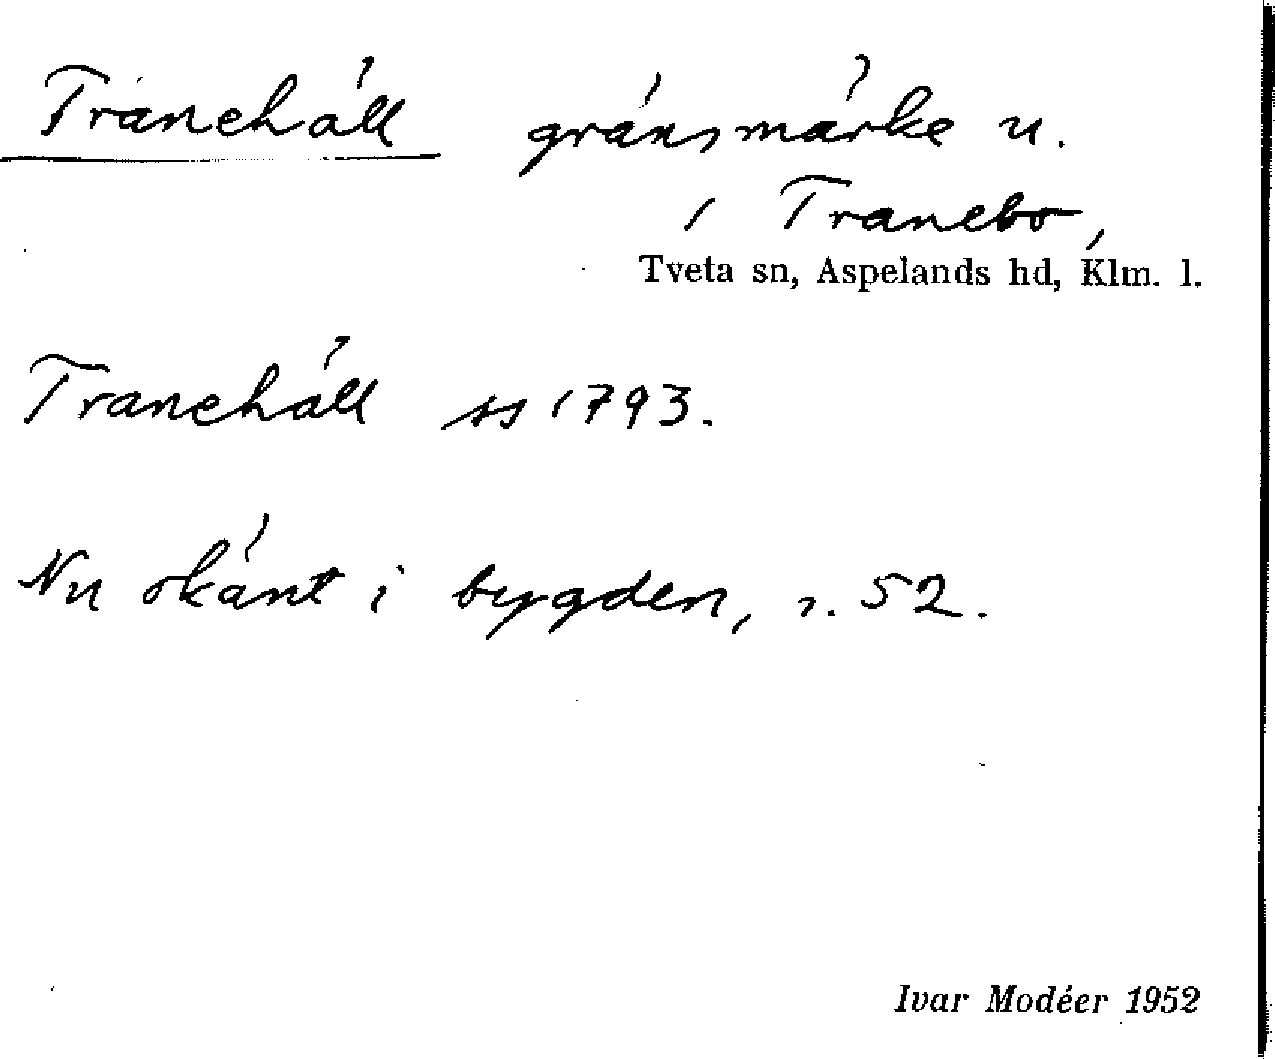 Tranehäll gränsmärke u.
i Tranebo,
Tveta sn, Aspelands hd, Klm. l.
Tranehäll ss 1793.
Nu okänt i bygden, s. 52.
Ivar Modéer 1952